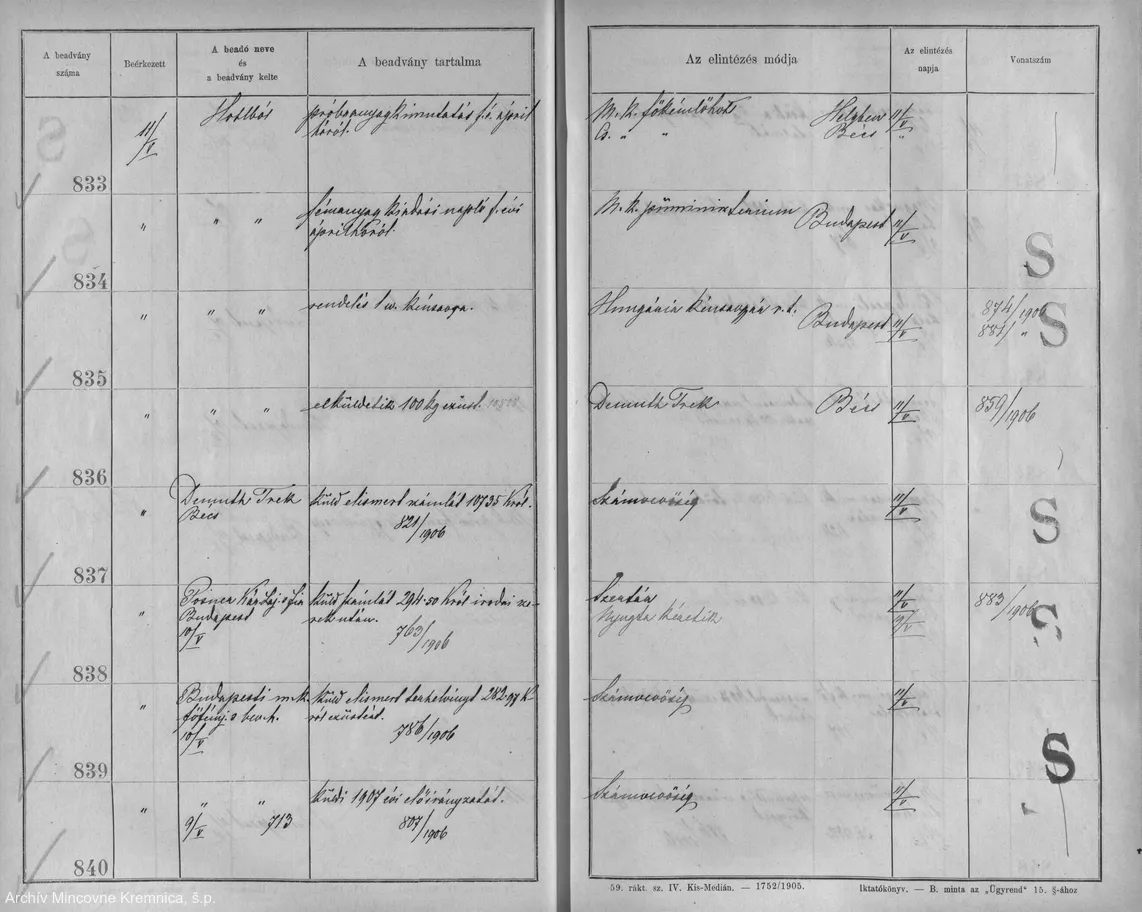 A beadvány
száma
Beérkezett
A beadó neve
és
a beadvány kelte
A beadvány tartalma
Az elintézés módja
Az elintézés
napja
Vonatszám
11/V
próbaanyagkimutatás f. é. april
hóról.
M. k. főkémlőhiv.
Bécs
11/V
833
" "
fémanyag kiadási napló f. évi
április hóról.
M. k. pénzministerium
Budapest 11/V
834
" " "
rendelés 1 w. kénsavra.
Hungária kénsavgyár r. t.
Budapest 11/V
874/1906
881/ "
835
" " "
elküldetik 100 kg ezüst.
Demuth Trek
Bécs 11/V
859/1906
836
"
Demuth Trek
Bécs
küld elismert számlát 10735 Król.
821/1906
Számvevőség
11/V
837
"
Budapest
10/V
küld számlát 294·50 Król irodai sze-
rek után.
763/1906
Szertár
Nyugta kéretik
11/V
883/1906
838
"
Budapesti m. k.
főfémj. s bev. h.
10/V
küld elismert terhelvényt 282·97 K
ról ezüstért.
786/1906
Számvevőség
11/V
839
" " "
9/V 713
küldi 1907 évi előirányzatát.
807/1906
Számvevőség
11/V
840
S
S
S
S
S
59. rakt. sz. IV. Kis-Median. — 1752/1905.
Iktatókönyv. — B. minta az „Ügyrend" 15. §-ához
Archív Mincovne Kremnica, š.p.